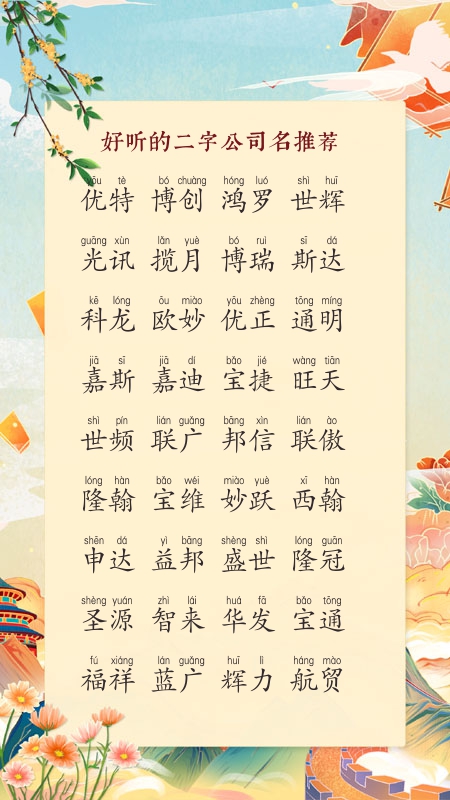 好听的二字公司名推荐
yōu tè bó chuàng hóng luó shì huī
优特 博创 鸿罗 世辉
guāng xùn lǎn yuè bó ruì sī dá
光讯 揽月 博瑞 斯达
kē lóng ōu miào yōu zhèng tōng míng
科龙 欧妙 优正 通明
jiā sī jiā dí bǎo jié wàng tiān
嘉斯 嘉迪 宝捷 旺天
shì pín lián guǎng bāng xìn lián ào
世频 联广 邦信 联傲
lóng hàn bǎo wéi miào yuè xī hàn
隆翰 宝维 妙跃 西翰
shēn dá yì bāng shèng shì lóng guān
申达 益邦 盛世 隆冠
shèng yuán zhì lái huá fā bǎo tōng
圣源 智来 华发 宝通
fú xiáng lán guǎng huī lì háng mào
福祥 蓝广 辉力 航贸